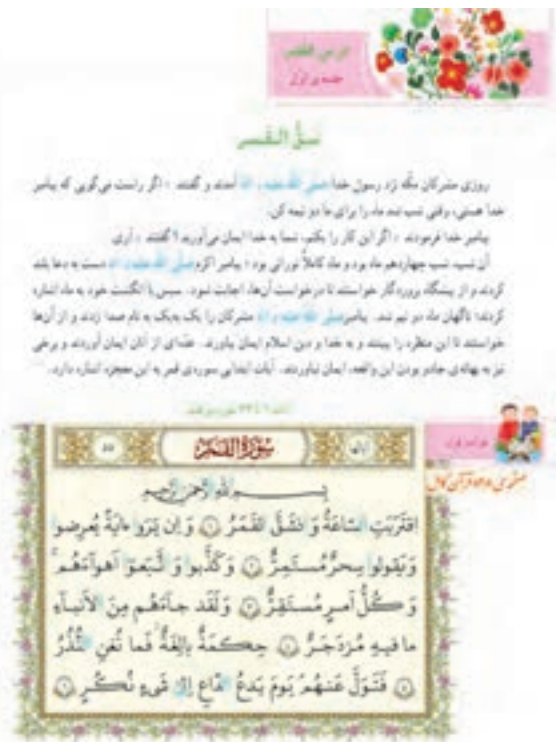 درس هفتم
جلسه‌ی اول
شقّ القمر
روزی مشرکان مکّه نزد رسول خدا صلّی الله علیه و آله آمدند و گفتند: اگر راست می‌گویی که پیامبر
خدا هستی، وقتی شب شد ماه را برای ما دو نیمه کن.
پیامبر خدا فرمودند: اگر این کار را بکنم، شما به خدا ایمان می‌آورید؟ گفتند: آری.
آن شب، شب چهاردهم ماه بود و ماه کاملاً نورانی بود؛ پیامبر اکرم صلّی الله علیه و آله دست به دعا بلند
کردند و از پیشگاه پروردگار خواستند تا درخواست آن‌ها، اجابت شود. سپس با انگشت خود به ماه اشاره
کردند؛ ناگهان ماه دو نیم شد. پیامبر صلّی الله علیه و آله مشرکان را یک به‌یک به نام صدا زدند و از آن‌ها
خواستند تا این منظره را ببینند و به خدا و دین اسلام ایمان بیاورند. عدّه‌ای از آنان ایمان آوردند و برخی
نیز به بهانه‌ی جادو بودن این واقعه، ایمان نیاوردند. آیات ابتدایی سوره‌ی قمر به این معجزه اشاره دارد.
سُورَةُ القَمَر
۵۵
بِسمِ اللهِ الرَّحمٰنِ الرَّحیمِ
اِقتَرَبَتِ السّاعَةُ وَ انشَقَّ القَمَرُ ۱ وَ اِن یَرَوا ءایَةً یُعرِضوا
وَیَقولوا سِحرٌ مُستَمِرٌّ ۲ وَ کَذَّبوا وَ اتَّبَعوٓا اَهوآءَهُم
وَ کُلُّ اَمرٍ مُستَقِرٌّ ۳ وَ لَقَد جآءَهُم مِنَ الاَنبآءِ
ما فیهِ مُزدَجَرٌ ۴ حِکمَةٌ بالِغَةٌ فَما تُغنِ النُّذُرُ
۵ فَتَوَلَّ عَنهُم یَومَ یَدعُ الدّاعِ اِلیٰ شَیءٍ نُکُرٍ ۶